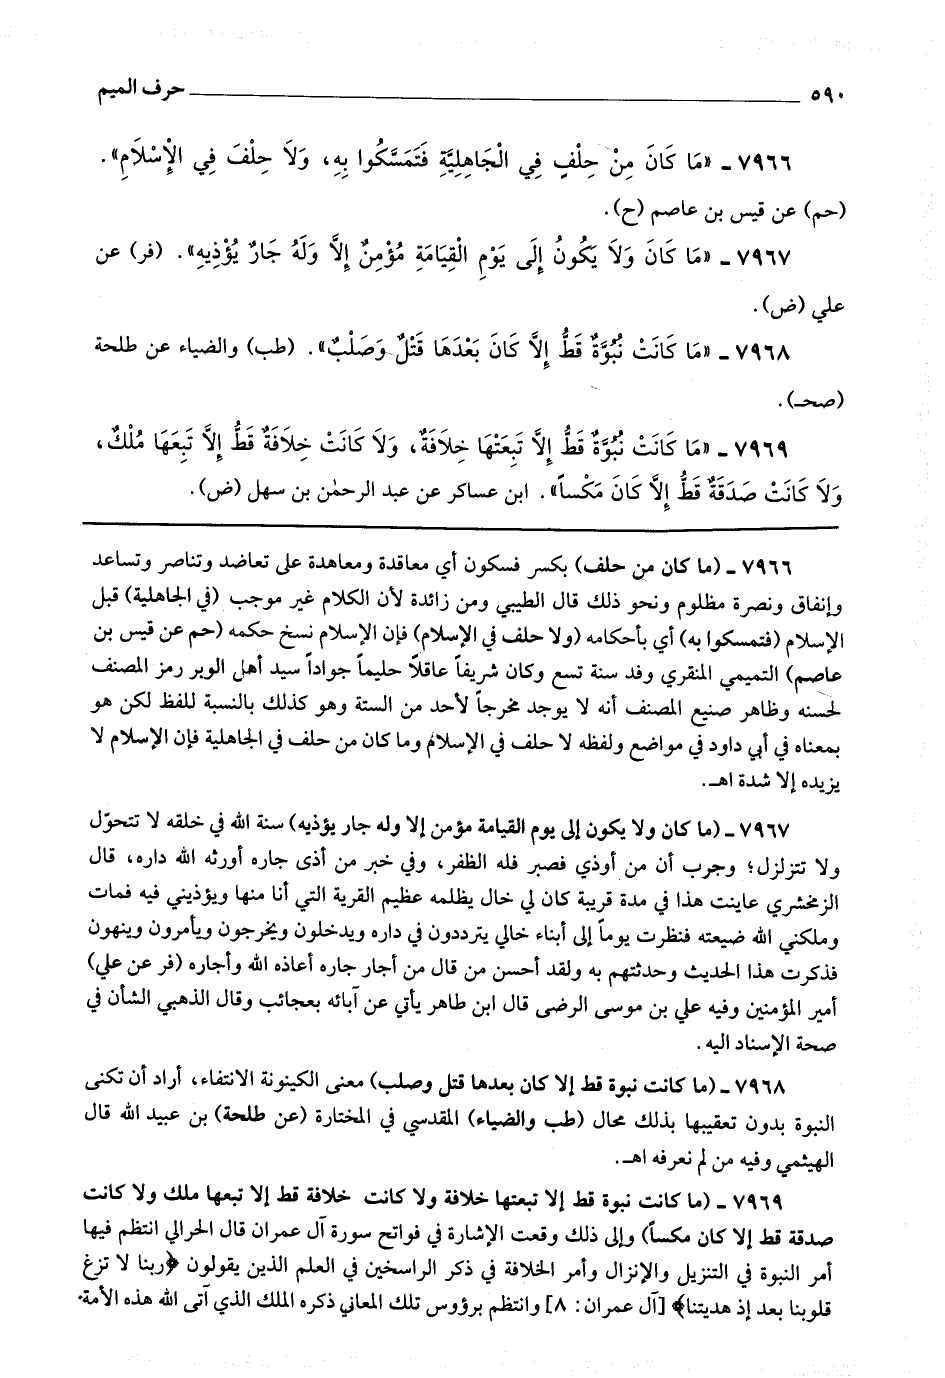 ٥٩٠ حرف الميم
٧٩٦٦ ـ «مَا كَانَ مِنْ حِلْفٍ فِي الْجَاهِلِيَّةِ فَتَمَسَّكُوا بِهِ، وَلَا حِلْفَ فِي الْإِسْلَامِ».
(حم) عن قيس بن عاصم (ح).
٧٩٦٧ ـ «مَا كَانَ وَلَا يَكُونُ إِلَى يَوْمِ الْقِيَامَةِ مُؤْمِنٌ إِلَّا وَلَهُ جَارٌ يُؤْذِيهِ». (فر) عن
علي (ض).
٧٩٦٨ ـ «مَا كَانَتْ نُبُوَّةٌ قَطُّ إِلَّا كَانَ بَعْدَهَا قَتْلٌ وَصَلْبٌ». (طب) والضياء عن طلحة
(صحـ).
٧٩٦٩ ـ «مَا كَانَتْ نُبُوَّةٌ قَطُّ إِلَّا تَبِعَتْهَا خِلَافَةٌ، وَلَا كَانَتْ خِلَافَةٌ قَطُّ إِلَّا تَبِعَهَا مُلْكٌ،
وَلَا كَانَتْ صَدَقَةٌ قَطُّ إِلَّا كَانَ مَكْساً». ابن عساكر عن عبد الرحمٰن بن سهل (ض).
٧٩٦٦ ـ (ما كان من حلف) بكسر فسكون أي معاقدة ومعاهدة على تعاضد وتناصر وتساعد
وإنفاق ونصرة مظلوم ونحو ذلك قال الطيبي ومن زائدة لأن الكلام غير موجب (في الجاهلية) قبل
الإسلام (فتمسكوا به) أي بأحكامه (ولا حلف في الإسلام) فإن الإسلام نسخ حكمه (حم عن قيس بن
عاصم) التميمي المنقري وفد سنة تسع وكان شريفاً عاقلاً حليماً جواداً سيد أهل الوبر رمز المصنف
لحسنه وظاهر صنيع المصنف أنه لا يوجد مخرجاً لأحد من الستة وهو كذلك بالنسبة للفظ لكن هو
بمعناه في أبي داود في مواضع ولفظه لا حلف في الإسلام وما كان من حلف في الجاهلية فإن الإسلام لا
يزيده إلا شدة اهـ.
٧٩٦٧ ـ (ما كان ولا يكون إلى يوم القيامة مؤمن إلا وله جار يؤذيه) سنة الله في خلقه لا تتحوّل
ولا تتزلزل؛ وجرب أن من أوذي فصبر فله الظفر، وفي خبر من أذى جاره أورثه الله داره، قال
الزمخشري عاينت هذا في مدة قريبة كان لي خال يظلمه عظيم القرية التي أنا منها ويؤذيني فيه فمات
وملكني الله ضيعته فنظرت يوماً إلى أبناء خالي يترددون في داره ويدخلون ويخرجون ويأمرون وينهون
فذكرت هذا الحديث وحدثتهم به ولقد أحسن من قال من أجار جاره أعاذه الله وأجاره (فر عن علي)
أمير المؤمنين وفيه علي بن موسى الرضى قال ابن طاهر يأتي عن آبائه بعجائب وقال الذهبي الشأن في
صحة الإسناد اليه.
٧٩٦٨ ـ (ما كانت نبوة قط إلا كان بعدها قتل وصلب) معنى الكينونة الانتفاء، أراد أن تكنى
النبوة بدون تعقيبها بذلك محال (طب والضياء) المقدسي في المختارة (عن طلحة) بن عبيد الله قال
الهيثمي وفيه من لم نعرفه اهـ.
٧٩٦٩ ـ (ما كانت نبوة قط إلا تبعتها خلافة ولا كانت خلافة قط إلا تبعها ملك ولا كانت
صدقة قط إلا كان مكساً) وإلى ذلك وقعت الإشارة في فواتح سورة آل عمران قال الحرالي انتظم فيها
أمر النبوة في التنزيل والإنزال وأمر الخلافة في ذكر الراسخين في العلم الذين يقولون ﴿ربنا لا تزغ
قلوبنا بعد إذ هديتنا﴾ [آل عمران: ٨] وانتظم برؤوس تلك المعاني ذكره الملك الذي آتى الله هذه الأمة.